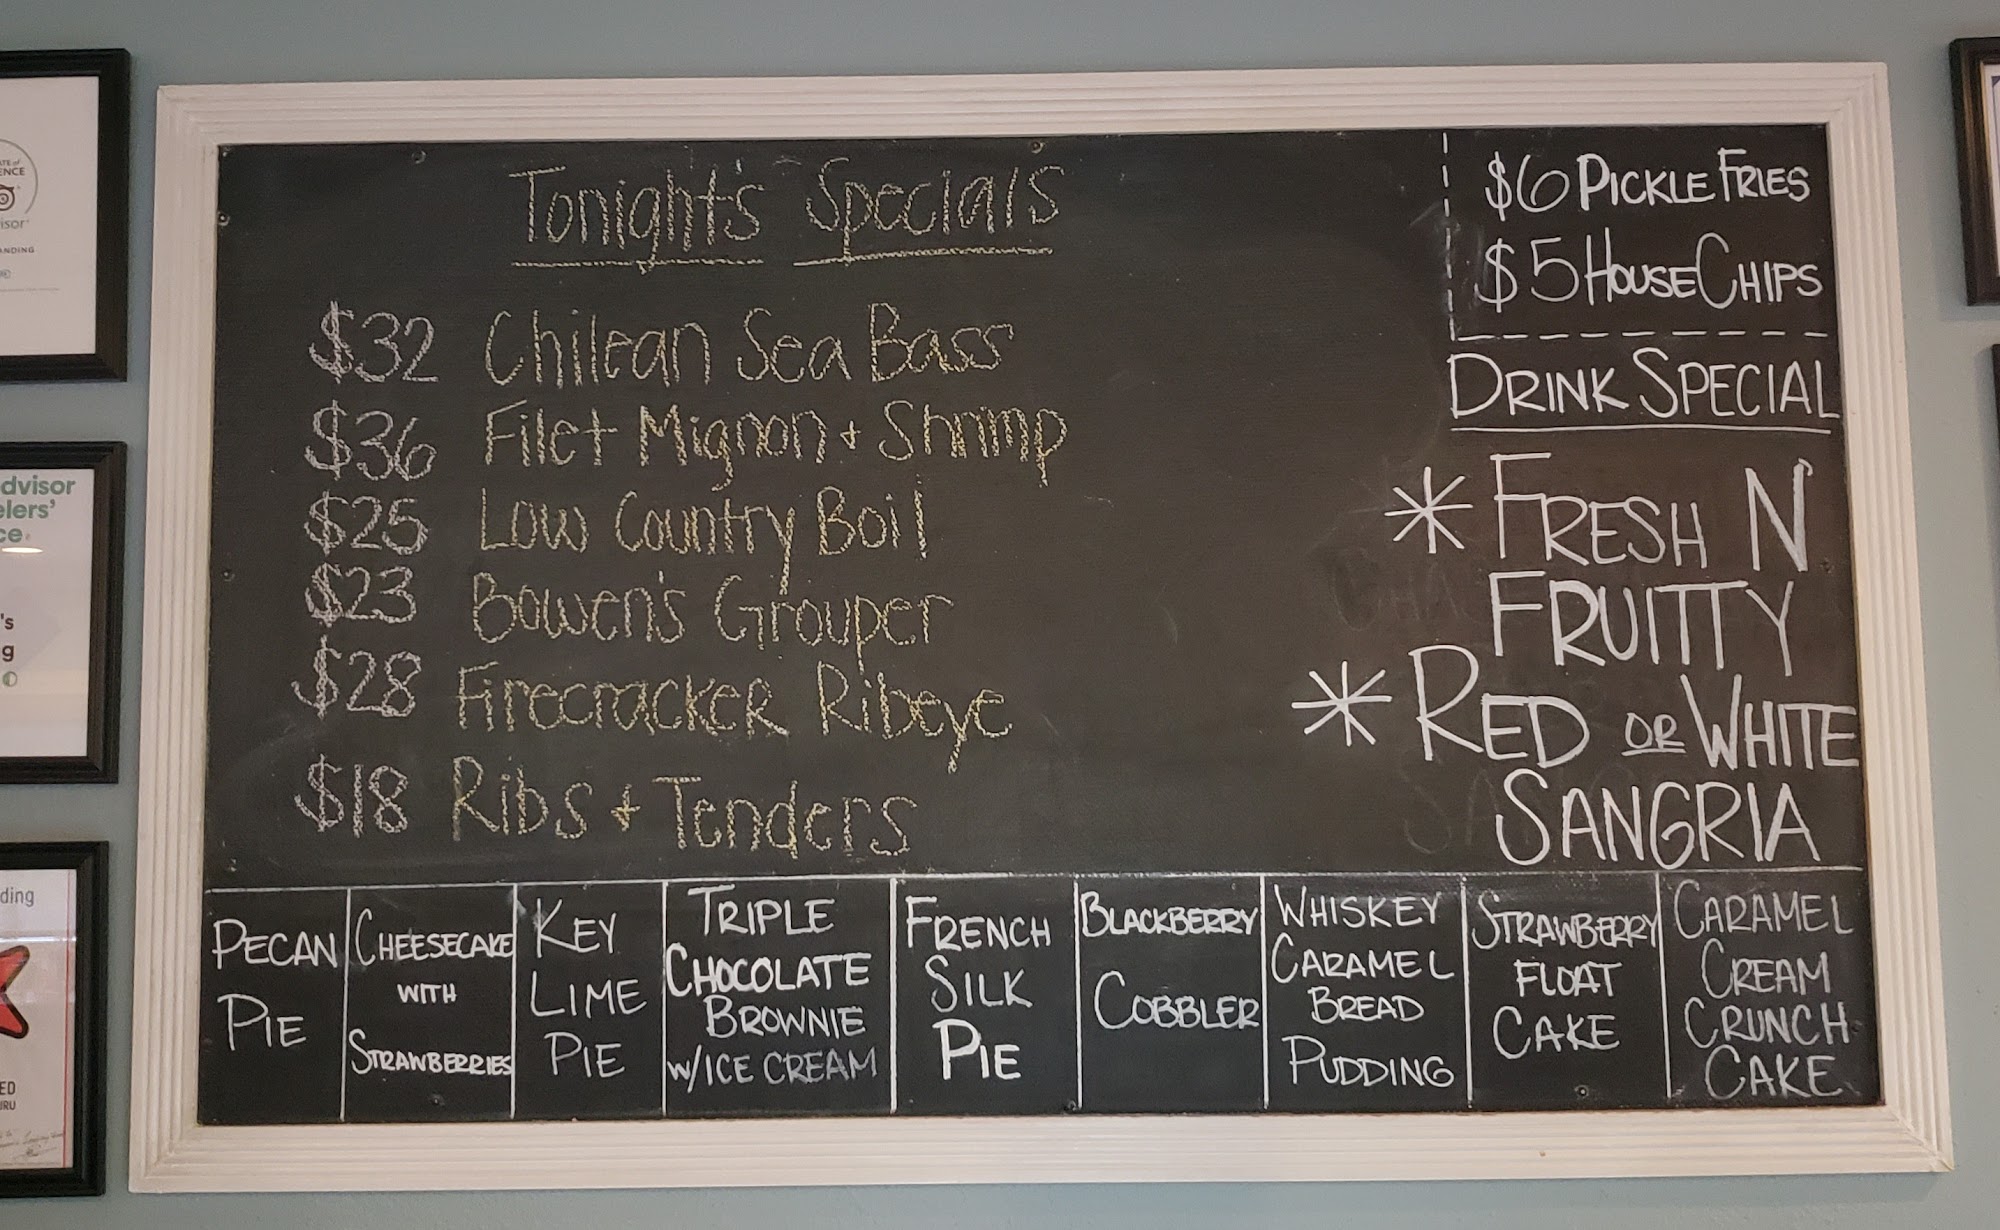 Tonight's Specials
$32 Chilean Sea Bass
$36 Filet Mignon + Shrimp
$25 Low Country Boil
$23 Bowen's Grouper
$28 Firecracker Ribeye
$18 Ribs + Tenders
$6 PICKLE FRIES
$5 HOUSE CHIPS
DRINK SPECIAL
* FRESH N
FRUITTY
* RED OR WHITE
SANGRIA
PECAN
PIE
CHEESECAKE
WITH
STRAWBERRIES
KEY
LIME
PIE
TRIPLE
CHOCOLATE
BROWNIE
W/ICE CREAM
FRENCH
SILK
PIE
BLACKBERRY
COBBLER
WHISKEY
CARAMEL
BREAD
PUDDING
STRAWBERRY
FLOAT
CAKE
CARAMEL
CREAM
CRUNCH
CAKE
ATE of
ENCE
isor
ANDING
dvisor
elers'
ce
's
g
ding
ED
URU